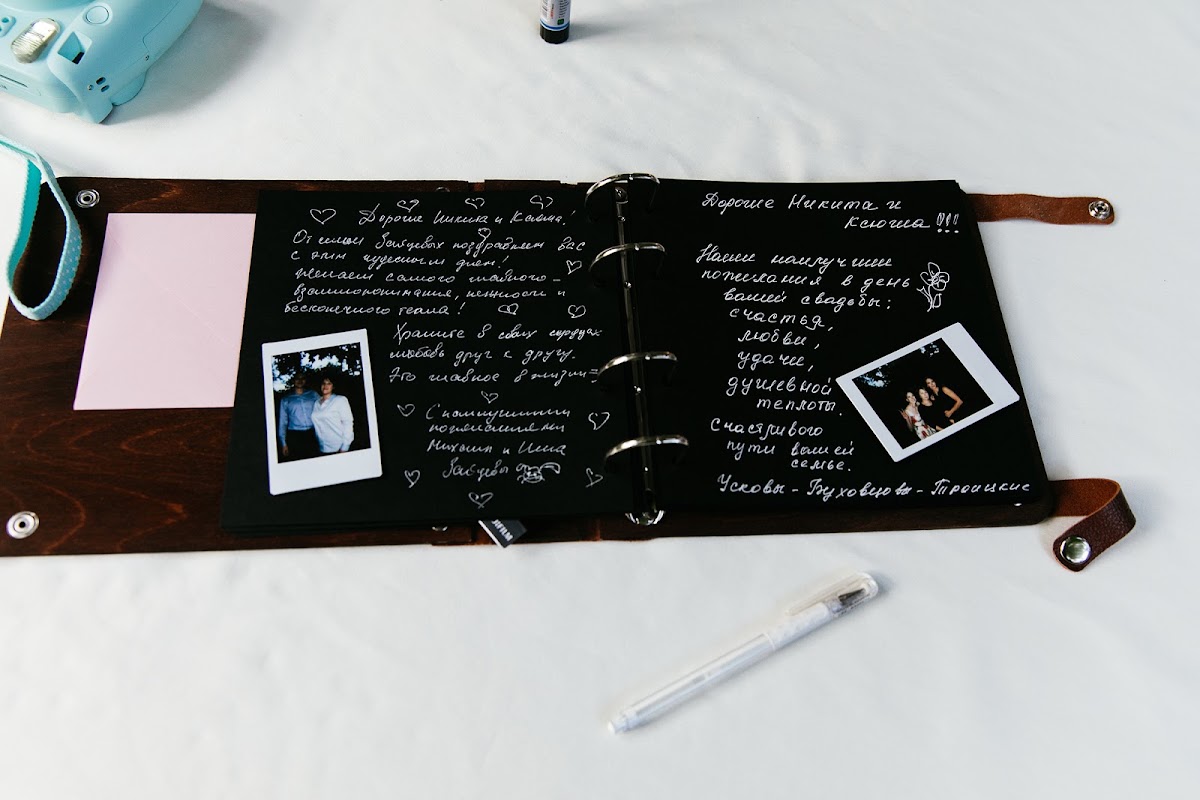 Дорогие Никита и Ксюша!
От семьи Зайцевых поздравляем вас
с этим чудесным днем!
Желаем самого главного -
взаимопонимания, нежности и
бесконечного тепла!
Храните в своих сердцах
любовь друг к другу.
Это главное в жизни
С наилучшими
пожеланиями
Михаил и Инна
Зайцевы
Дорогие Никита и
Ксюша!!!
Наши наилучшие
пожелания в день
вашей свадьбы:
счастья,
любви,
удачи,
душевной
теплоты.
Счастливого
пути вашей
семье.
Усковы - Буховцовы - Троицкие